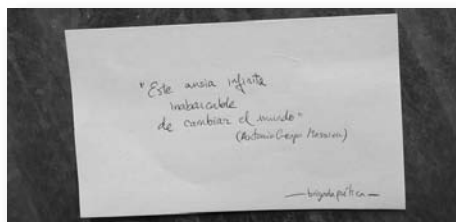 "Este ansia infinita
inabarcable
de cambiar el mundo"
(Antonio Crespo Massieu)
— brigada poética —